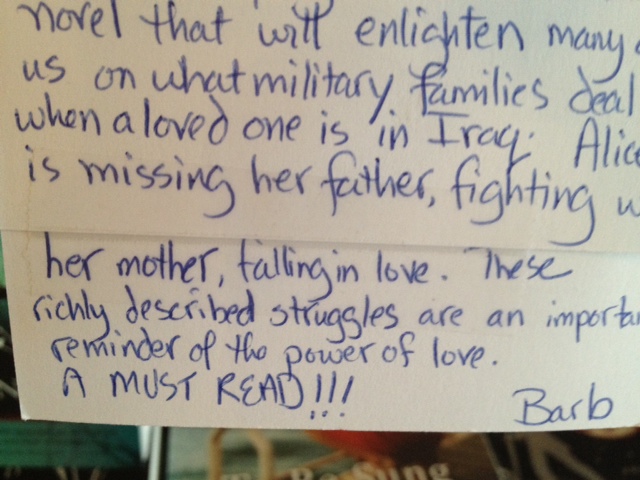 novel that will enlighten many
us on what military families deal
when a loved one is in Iraq. Alice
is missing her father, fighting w
her mother, falling in love. These
richly described struggles are an importa
reminder of the power of love.
A MUST READ!!!
Barb
To Be Sung